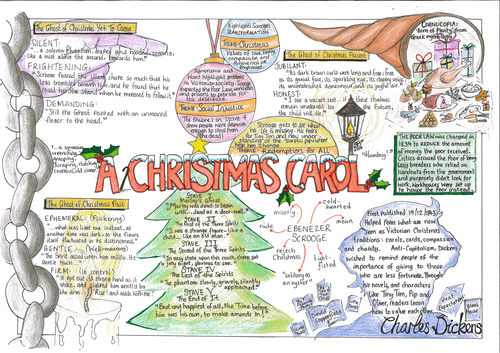 The Ghost of Christmas Yet To Come
SILENT
"... a solemn Phantom, draped and hooded, coming,
like a mist along the ground, towards him."
FRIGHTENING
"Scrooge feared the silent shape so much that his
legs trembled beneath him, and he found that he
could hardly stand when he prepared to follow it."
DEMANDING
"Still the Ghost pointed with an unmoved
finger to the head."
Highlights Scrooge's
TRANSFORMATION
THEME: Christmas
Values of love, home,
compassion and
generosity are
expressed
Ignorance and
Want highlight problems
in Victorian society. Scrooge
supported the Poor Law, workhouses
and prisons to provide for
the destitute.
THEME: Social Injustice
The thieves in Stave 4
show people were desperate
enough to steal from
the dead!
The Ghost of Christmas Present
JUBILANT:
"Its dark brown curls were long and free: free
as its genial face, its sparkling eye, its cheery voice,
its unconstrained demeanour, and its joyful air."
HONEST:
"I see a vacant seat... if these shadows
remain unaltered by the Future,
the child will die."
CORNUCOPIA:
'horn of Plenty' from
Greek mythology
Scrooge gets to see what
his life is missing. He fears
for Tiny Tim and new under-
standing of the 'surplus population'
helps him change.
THEME: Redemption for All
"Humbug!"
THE POOR LAW was changed in
1834 to reduce the amount
of money the poor received.
Critics accused the Poor of being
lazy breeders who relied on
handouts from the government
and purposely didn't look
for work. Workhouses were set up
to house the poor instead.
"... a squeezing,
wrenching,
grasping,
scraping, clutching,
covetous, old sinner."
A CHRISTMAS CAROL
The Ghost of Christmas Past
EPHEMERAL (Flickering)
"...what was light one instant, at
another time was dark, so the figure
itself fluctuated in its distinctness"
GENTLE (Well-meaning)
"The Spirit gazed upon him mildly. Its
gentle touch
FIRM (in control)
"It put out its strong hand as it
spoke, and clasped him gently by
the arm. 'Rise! and walk with me!'
STAVE I
Marley's Ghost
"Marley was dead to begin
with... dead as a door-nail."
STAVE II
The First of the Three Spirits
"It was a strange figure - like a
child... like an old man."
STAVE III
The Second of the Three Spirits
"In easy state upon this couch, there sat
a jolly Giant, glorious to see..."
STAVE IV
The Last of the Spirits
"The phantom slowly, gravely, silently
approached."
STAVE V
The End of It
"Best and happiest of all, the Time before
him was his own, to make amends in!"
miserly
cold-
hearted
rude
mean
EBENEZER
SCROOGE
rejects
Christmas
tight-
fisted
"solitary as
an oyster"
First published 19/12/1843
Helped form what are now
seen as Victorian Christmas
traditions: carols, cards, compassion
and charity. Anti-Capitalism, Dickens
wished to remind people of the
importance of giving to those
who are less fortunate. Through
his novels, and characters
like Tiny Tim, Pip and
Oliver, readers learn
how to value each other.
David
Copperfield
Great
Expectations
Bleak
House
Charles Dickens